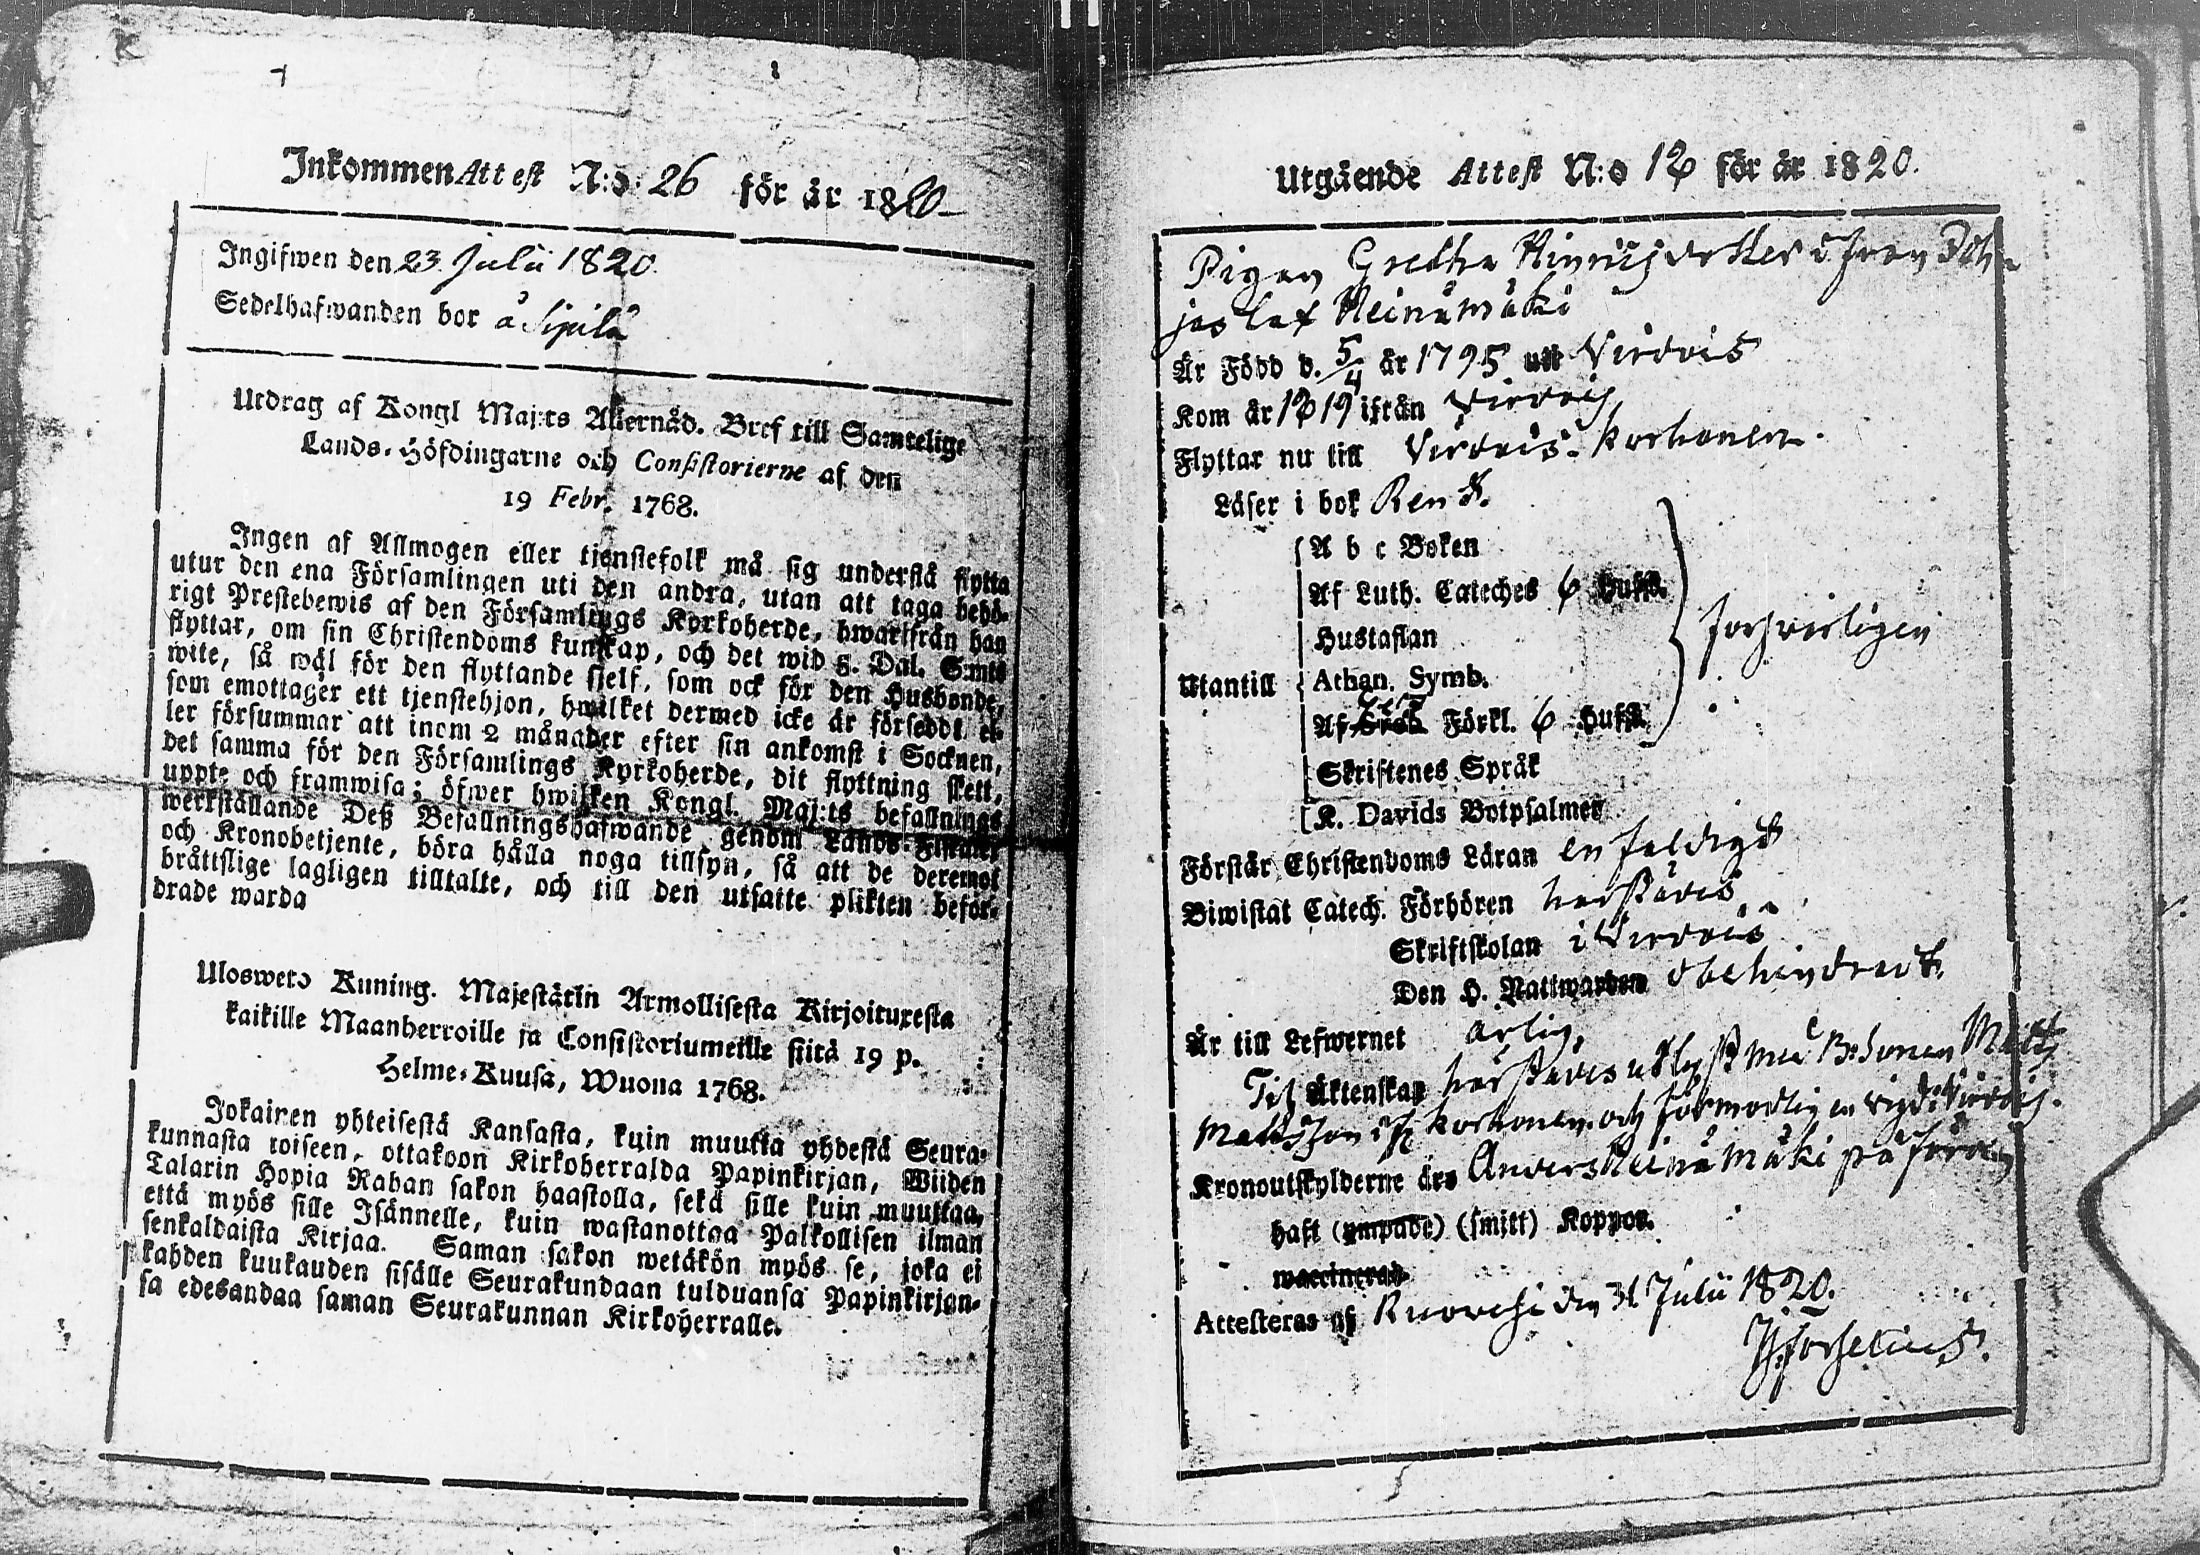 Inkommen Attest N:o 26 för år 1820
Ingifwen den 23 Julii 1820.
Sedelhafwanden bor å Sipilä
Utdrag af Kongl Maj:ts Allernåd. Bref till Samtelige
Lands-Höfdingarne och Consistorierne af den
19 Febr. 1768.
Ingen af Allmogen eller tjenstefolk må sig understå flytta
utur den ena Församlingen uti den andra, utan att taga behö-
rigt Prestebewis af den Församlings Kyrkoherde, hwarifrån han
flyttar, om sin Christendoms kunskap, och det wid 5. Dal. S:mts
wite, så wäl för den flyttande sjelf, som ock för den Husbonde,
som emottager ett tjenstehjon, hwilket dermed icke är försedt el-
ler försummar att inom 2 månader efter sin ankomst i Socknen,
det samma för den Församlings Kyrkoherde, dit flyttning skett,
uppte och framwisa; öfwer hwilken Kongl. Maj:ts befallnings
werkställande Deß Befallningshafwande genom Lands-Fiskaler
och Kronobetjente, böra hålla noga tillsyn, så att de deremot
bråttslige lagligen tilltalte, och till den utsatte plikten beför-
drade warda
Uloswetö Kuning. Majestätin Armollisesta Kirjoituxesta
kaikille Maanherroille ja Consistoriumeille siitä 19 p.
Helme-Kuusa, Wuona 1768.
Jokainen yhteisestä Kansasta, kuin muutta yhdestä Seura-
kunnasta toiseen, ottakoon Kirkoherralda Papinkirjan, Wiiden
Talarin Hopia Rahan sakon haastolla, sekä sille kuin muuttaa,
että myös sille Isännelle, kuin wastanottaa Palkollisen ilman
senkaldaista Kirjaa. Saman sakon wetäkön myös se, joka ei
kahden kuukauden sisälle Seurakundaan tulduansa Papinkirjan-
sa edesandaa saman Seurakunnan Kirkoherralle.
Utgående Attest N:o 18 för år 1820.
Pigan Gretha Hinrichsdotter ifrån
Heinämäki
Är Född d. 5/4 år 1795 uti Virdois
Kom år 1819 ifrån Virdois
Flyttar nu till Virdois. Korhonen.
Läser i bok Rent.
A b c Boken
Af Luth. Cateches 6 Hufst.
Hustaflan
Utantill Athan. Symb. försvarligen
Af Förkl. 6 Hufst.
Skriftenes Språk
K. Davids Botpsalmer
Förstår Christendoms Läran enfaldigt
Biwistat Catech. Förhören härstädes
Skriftskolan i Virdois
Den H. Nattwarden obehindradt.
Är till Lefwernet ärlig,
Til Äktenskap härstädes utlyst med B:sonen Matts
Mattsson ifr. Korhonen. och förmodligen vigd i Virdois.
Kronoutskylderne äro Anders Heinämäki på förde
haft (ympade) (smitt) Koppor.
waccinerad
Attesteras af Ruovesi den 31 Julii 1820.
Forselius.